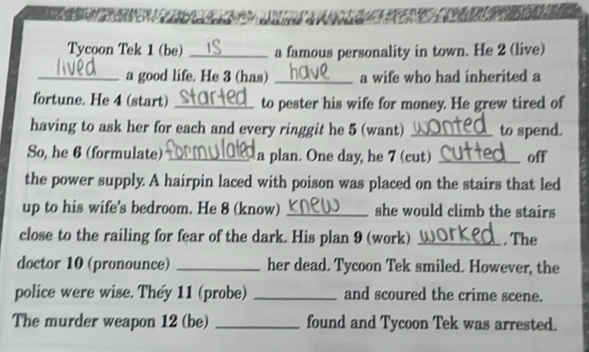 Tycoon Tek 1 (be) is a famous personality in town. He 2 (live)
lived a good life. He 3 (has) have a wife who had inherited a
fortune. He 4 (start) started to pester his wife for money. He grew tired of
having to ask her for each and every ringgit he 5 (want) wanted to spend.
So, he 6 (formulate) formulated a plan. One day, he 7 (cut) cutted off
the power supply. A hairpin laced with poison was placed on the stairs that led
up to his wife's bedroom. He 8 (know) knew she would climb the stairs
close to the railing for fear of the dark. His plan 9 (work) worked. The
doctor 10 (pronounce) ________ her dead. Tycoon Tek smiled. However, the
police were wise. They 11 (probe) ________ and scoured the crime scene.
The murder weapon 12 (be) ________ found and Tycoon Tek was arrested.